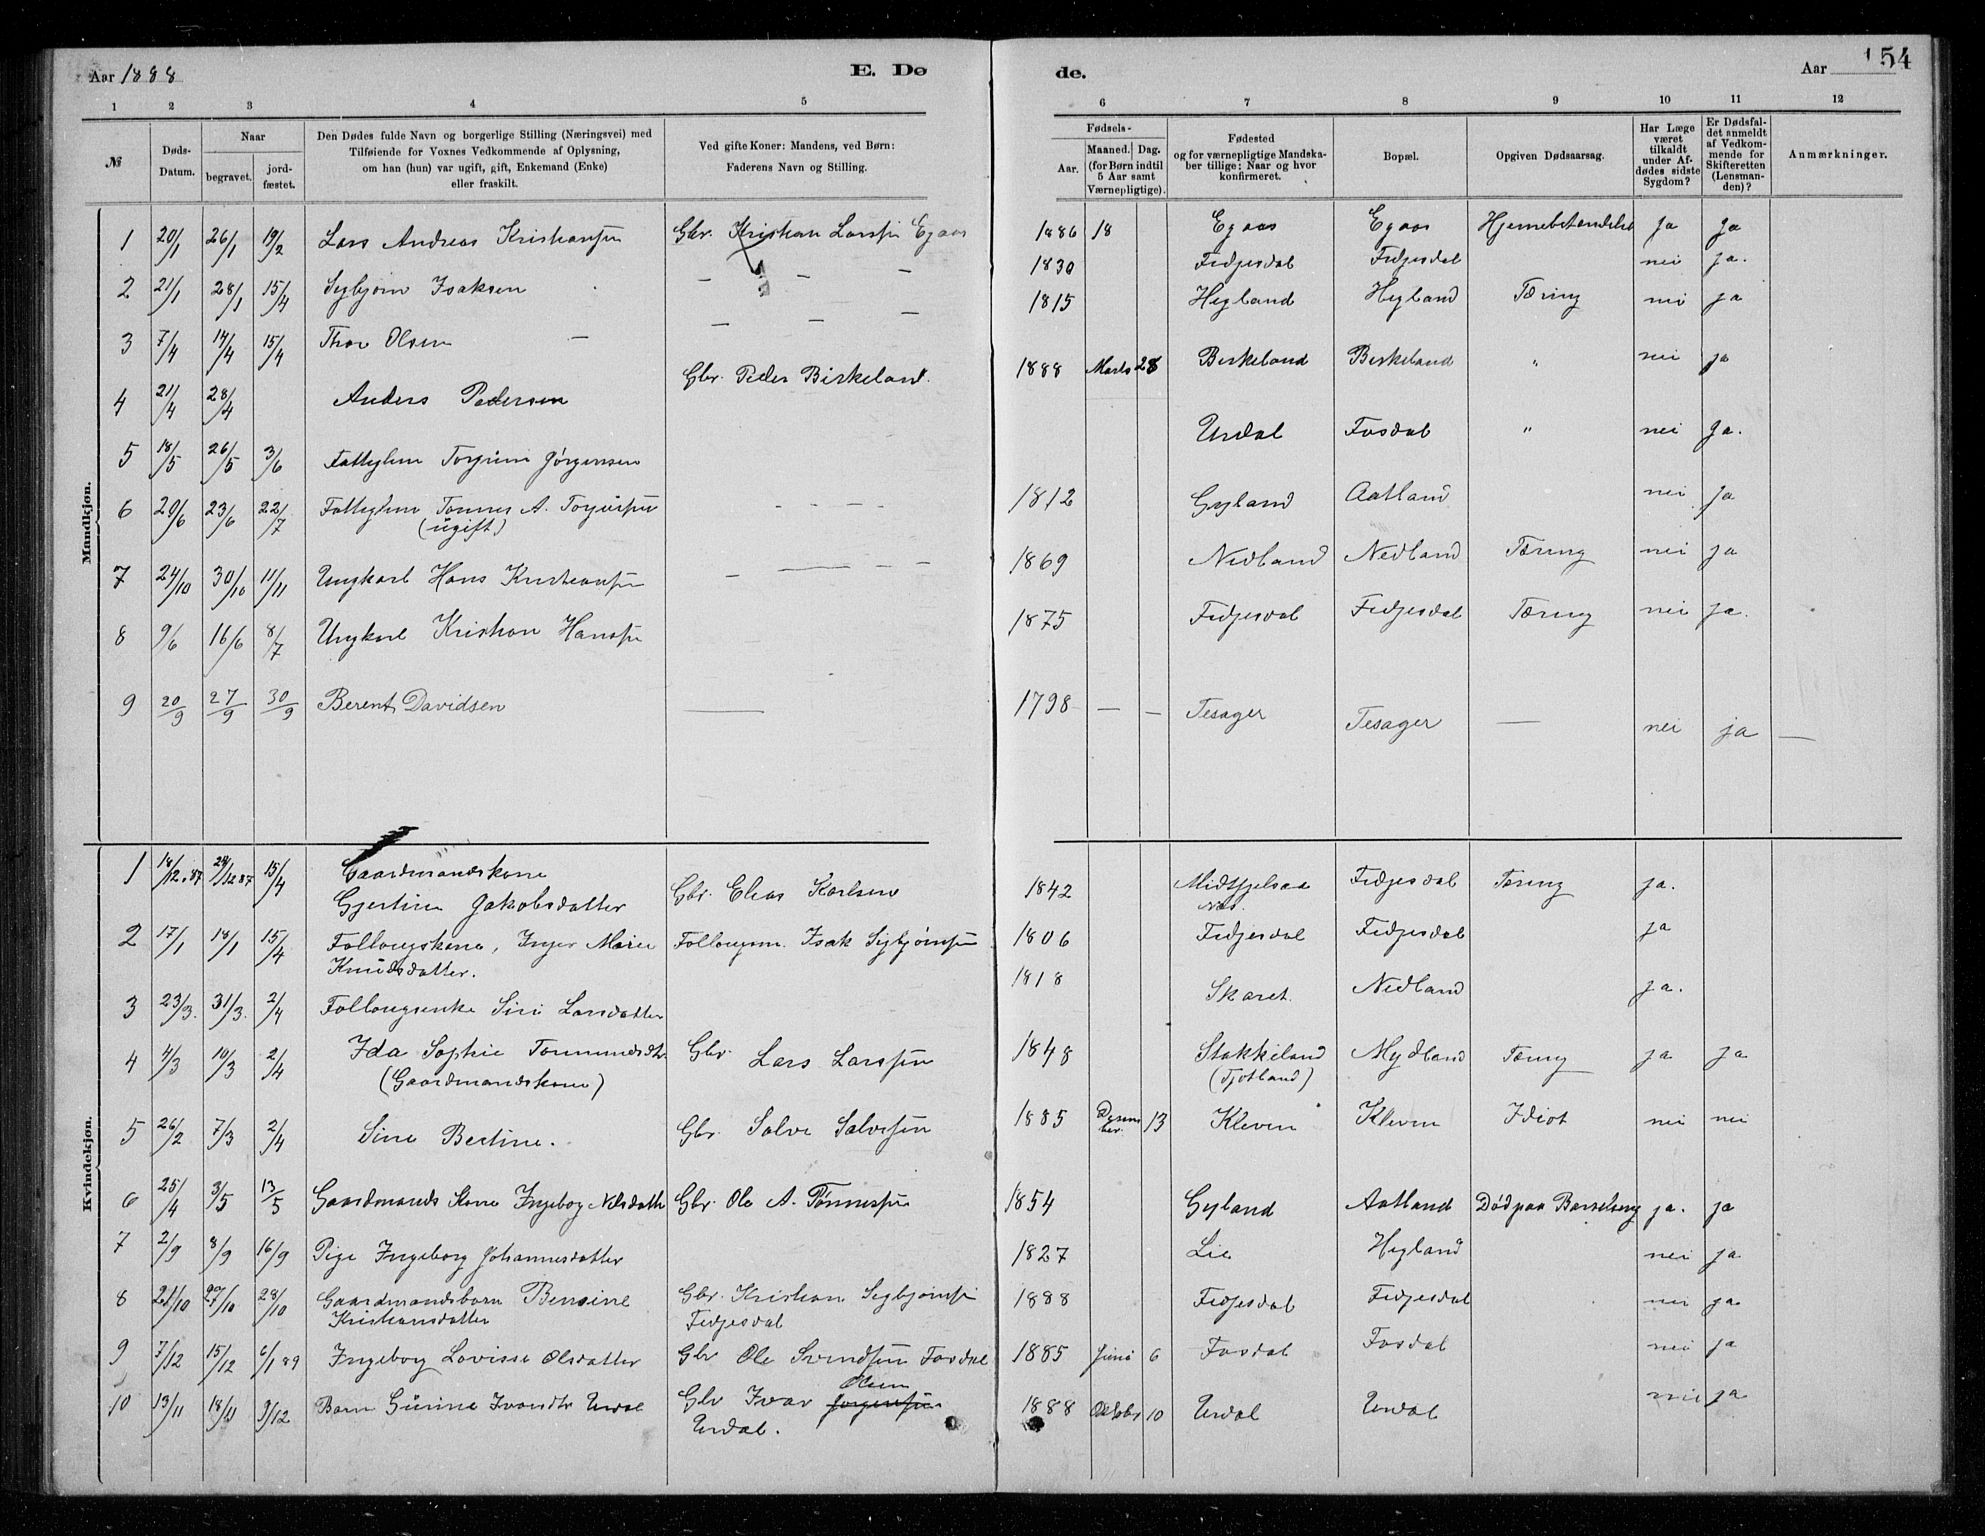 Aar 1888
E. Dø
de.
Aar
154
1 2 3 4 5 6 7 8 9 10 11 12
№
Døds-
Datum.
Naar
begravet.
jord-
fæstet.
Den Dødes fulde Navn og borgerlige Stilling (Næringsvei) med
Tilføiende for Voxnes Vedkommende af Oplysning,
om han (hun) var ugift, gift, Enkemand (Enke)
eller fraskilt.
Ved gifte Koner: Mandens, ved Børn:
Faderens Navn og Stilling.
Fødsels-
Aar.
Maaned. Dag.
(for Børn indtil
5 Aar samt
Værnepligtige).
Fødested
og for værnepligtige Mandska-
ber tillige: Naar og hvor
konfirmeret.
Bopæl.
Opgiven Dødsaarsag.
Har Læge
været
tilkaldt
under Af-
dødes sidste
Sygdom?
Er Dødsfal-
det anmeldt
af Vedkom-
mende for
Skifteretten
(Lensman-
den)?
Anmærkninger.
Mandkjøn.
1 20/1 26/1 19/2 Lars Andreas Kristiansen Gbr. Kristian Larsen Egaas 1886 18 Egaas Egaas Hjernebetændelse ja ja
2 21/1 28/1 15/4 Sigbjørn Isaksen — — — 1830 Fidjesdal Fidjesdal nei ja.
3 7/4 14/4 15/4 Thor Olsen — — — — 1815 Hegland Hegland Tæring nei ja
4 21/4 28/4 Anders Pedersen Gbr. Peder Birkeland. 1888 Marts 28 Birkeland Birkeland " nei ja
5 18/5 26/5 3/6 Fattiglem Jørgensen Urdal Fosdal " nei ja.
6 20/6 23/6 22/7 Fattiglem Tønnes A. - - — — 1812 Gyland Aatland nei ja
(ugift)
7 24/10 30/10 11/11 Ungkarl Hans Kristiansen — — — — 1869 Nedland Nedland Tæring nei ja
8 9/6 16/6 8/7 Ungkarl Kristian Hansen 1875 Fidjesdal Fidjesdal Tæring nei ja.
9 20/9 27/9 30/9 Berent Davidsen — 1798 — — Tesager Tesager — nei ja —
Kvindekjøn.
1 18/12.87 24/12 87 15/4 Gaardmandskone
Gjertine Jakobsdatter Gbr. Elias Karlsen 1842 Midtfjelsaa Fidjesdal Tæring ja.
Næs.
2 17/1 18/1 15/4 Follougskone, Inger Marie Follougsm. Isak Sigbjørnsen 1806 Fidjesdal Fidjesdal ja
Knudsdatter.
3 23/3. 31/3. 2/4 Follougsenke Siri Larsdatter 1818 Skaret. Nedland ja.
4 4/3 10/3 2/4 Ida Sophie Tommundsdtr Gbr. Lars Larssen 1848 Stakkeland Mydland Tæring ja ja
(Gaardmandskone) (Fjotland)
5 26/2 7/3 2/4 Sine Bertine. Gbr. Salve Salvesen 1885 Decem 13 Kleven Kleven Idiot nei nei
ber.
6 25/4 3/5 13/5 Gaardmands Kone Ingebog Nilsdattr Gbr. Ole A. Tønnesen 1854 Gyland Aatland Død paa Barselseng ja. ja
7 2/9 8/9 16/9 Pige Ingeborg Johannesdatter 1827 Lie Hegland nei ja
8 21/10 27/10 28/10 Gaardmandsbarn Bensine Gbr. Kristian Sigbjørnsen 1888 Fidjesdal Fidjesdal nei ja.
Kristiansdatter Fidjesdal
9 7/12 15/12 6/1 89 Ingeborg Lovisse Olsdatter Gbr Ole Svendsen Fosdal 1885 Juni 6 Fosdal Fosdal nei ja
Olsen
10 13/11 18/11 9/12 Barn Gurine Ivarsdtr Urdal Gbr Ivar Jørgensen 1888 Oktobr 10 Urdal Urdal nei ja
Urdal.